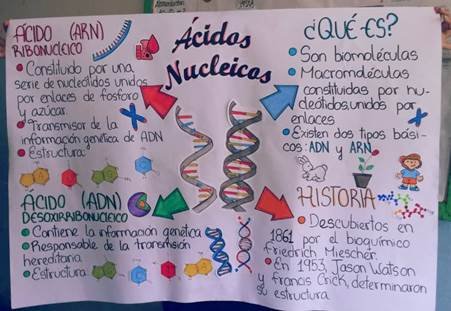 Ácidos
Nucleicos
ÁCIDO (ARN)
RIBONUCLEICO
Constituido por una
serie de nucleótidos unidos
por enlaces de fosforo
y azúcar.
Transmisor de la
información genética de ADN
Estructura:
¿QUÉ-ES?
Son biomoléculas
Macromoléculas
constituidas por nu-
cleótidos,unidos por
enlaces
Existen dos tipos bási-
cos: ADN y ARN
ÁCIDO (ADN)
DESOXIRRIBONUCLEICO
Contiene la información genética
Responsable de la transmisión
hereditaria.
Estructura
HISTORIA
Descubiertos en
1861 por el bioquímico
Friedrich Miescher.
En 1953, Jason Watson
y francis Crick, determinaron
su estructura